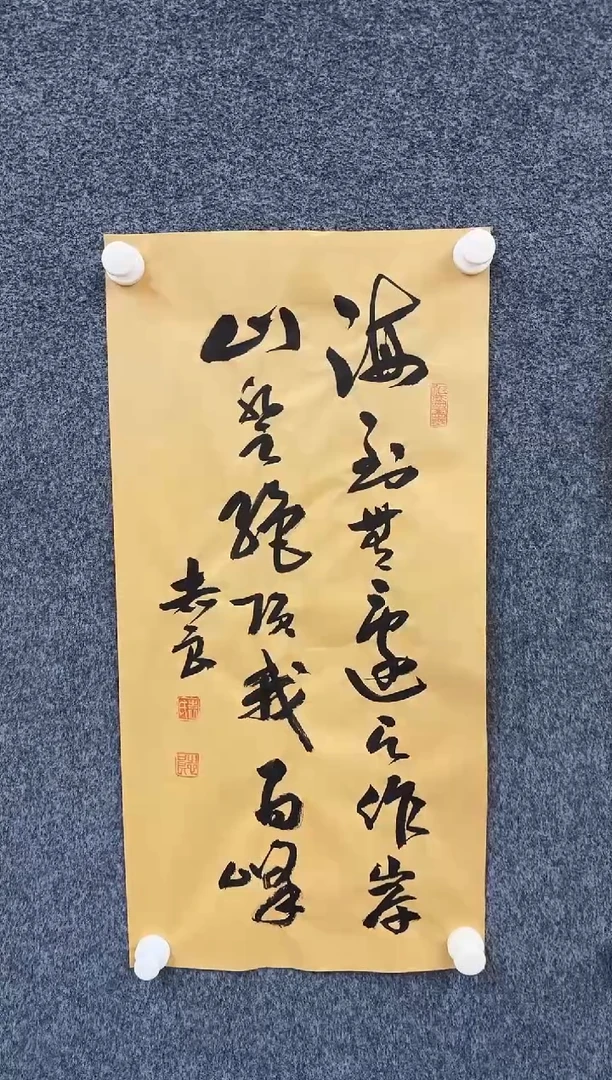 海到無邊天作岸
山登绝顶我百峰
志良